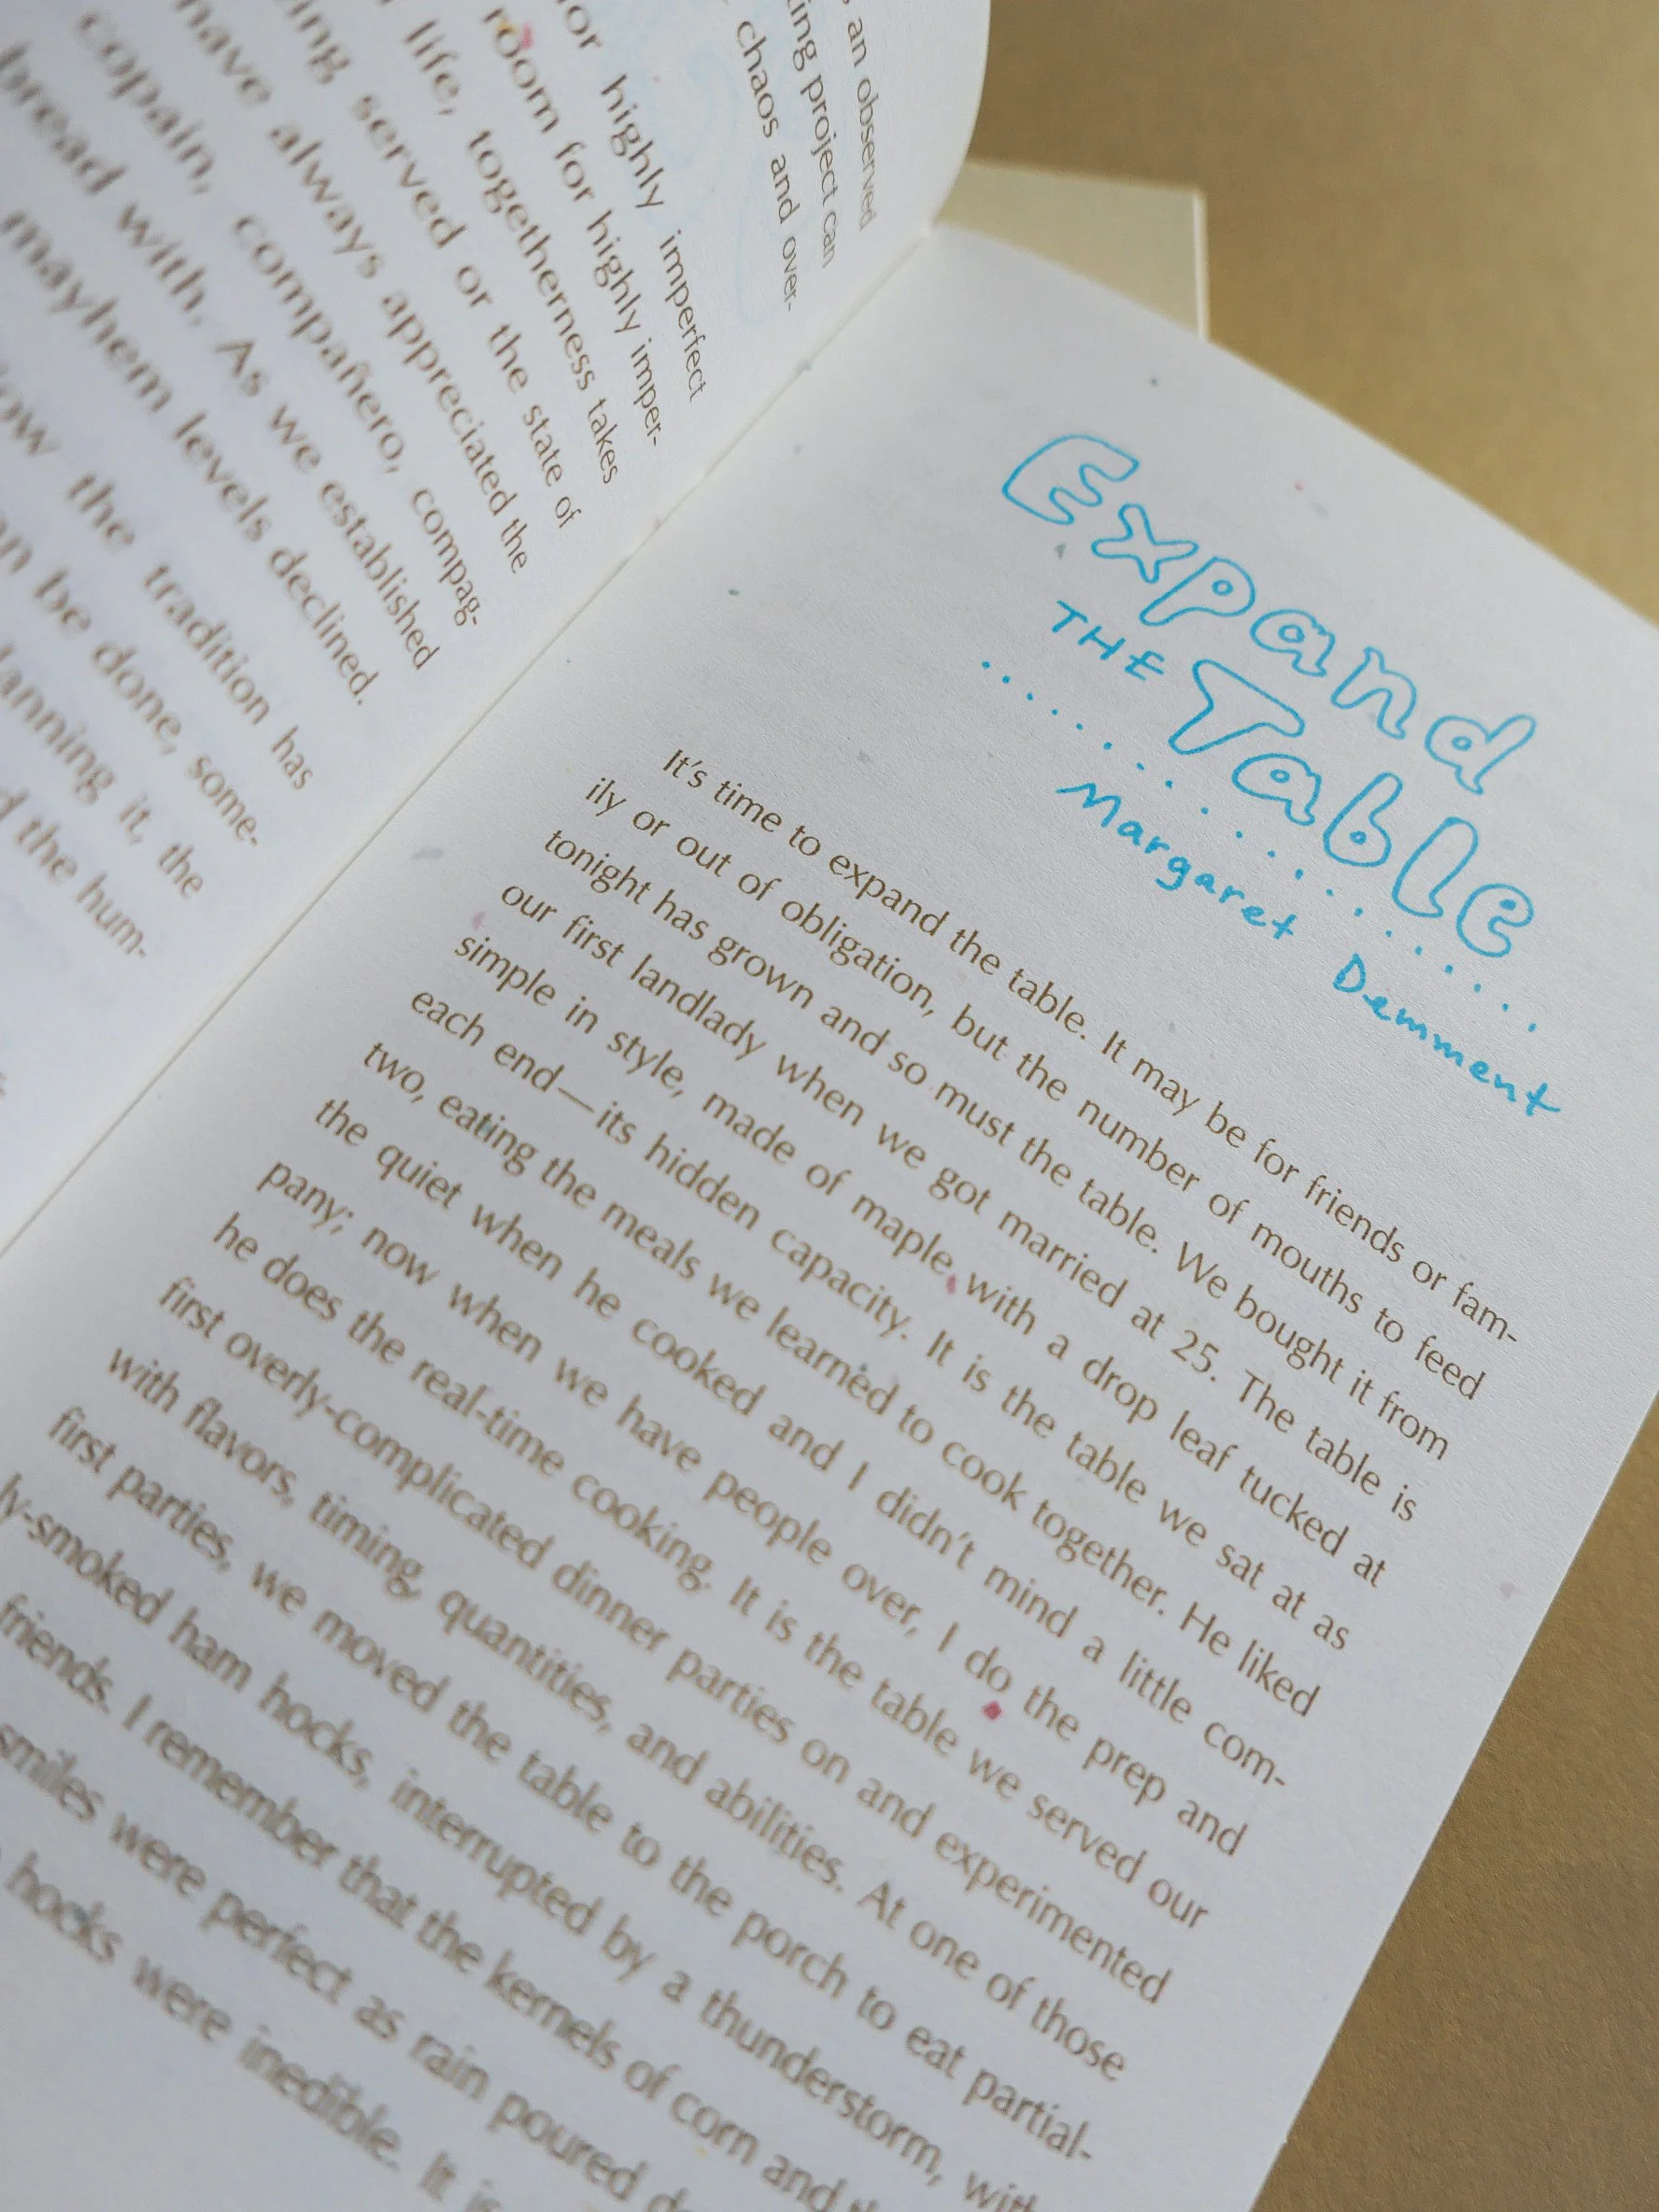 an observed
ing project can
chaos and over-
or highly imperfect
room for highly imper-
life, togetherness takes
ing served or the state of
have always appreciated the
copain, compañero, compag-
bread with. As we established
mayhem levels declined.
the tradition has
an be done, some-
anning it, the
d the hum-
Expand
THE Table
Margaret Demment
It's time to expand the table. It may be for friends or fam-
ily or out of obligation, but the number of mouths to feed
tonight has grown and so must the table. We bought it from
our first landlady when we got married at 25. The table is
simple in style, made of maple with a drop leaf tucked at
each end—its hidden capacity. It is the table we sat at as
two, eating the meals we learned to cook together. He liked
the quiet when he cooked and I didn't mind a little com-
pany; now when we have people over, I do the prep and
he does the real-time cooking. It is the table we served our
first overly-complicated dinner parties on and experimented
with flavors, timing, quantities, and abilities. At one of those
first parties, we moved the table to the porch to eat partial-
ly-smoked ham hocks, interrupted by a thunderstorm, with
friends. I remember that the kernels of corn and
smiles were perfect as rain poured
hocks were inedible. It is